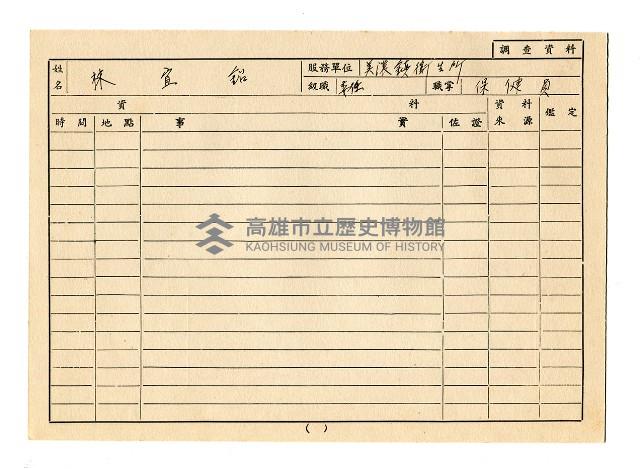 調查資料
姓名 林宜鋁 服務單位 美濃鎮衛生所
級職 車伕 職掌 保健員
資料 資料來源 鑑定
時間 地點 事實 佐證
高雄市立歷史博物館
KAOHSIUNG MUSEUM OF HISTORY
( )